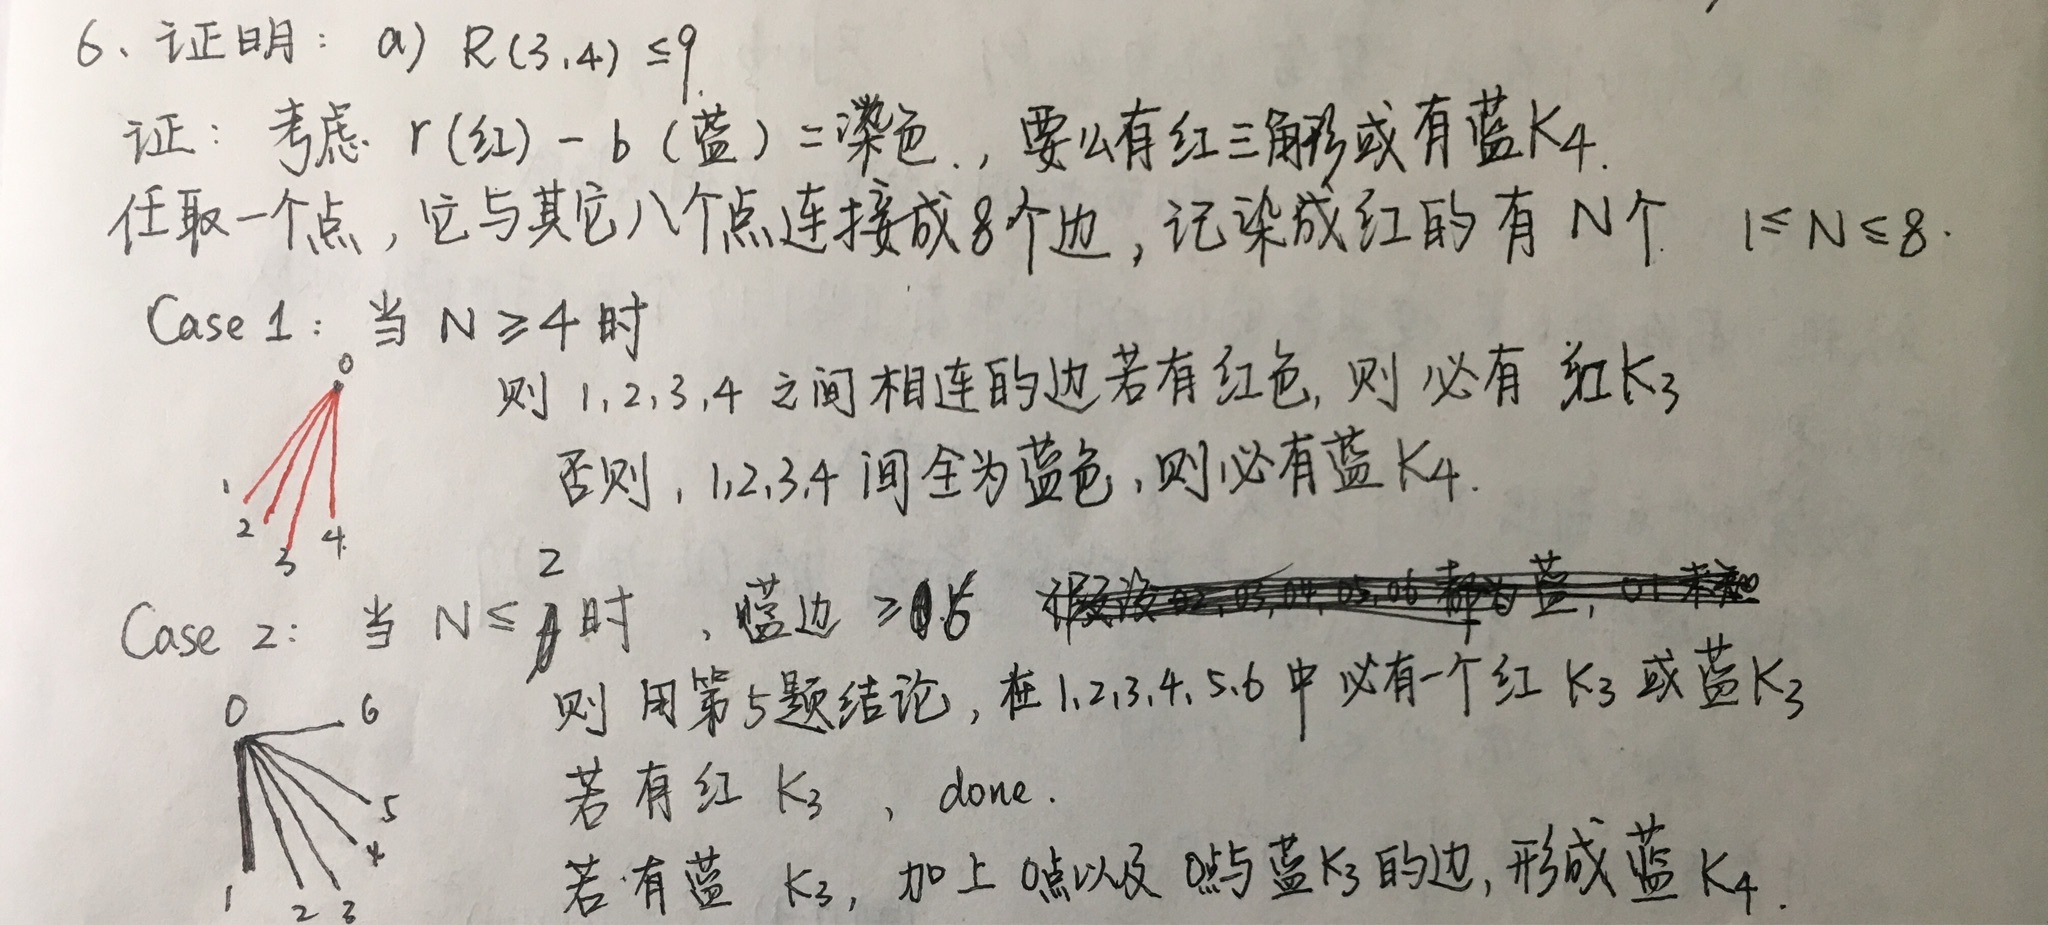 6、证明: a) R(3,4) ≤9.
证: 考虑 r(红) - b(蓝)二染色., 要么有红三角形或有蓝K4.
任取一个点, 它与其它八个点连接成8个边, 记染成红的有 N个 1≤ N ≤8.
Case 1: 当 N ≥4 时
0
则 1,2,3,4 之间相连的边若有红色, 则必有 红K3
否则, 1,2,3,4 间全为蓝色, 则必有蓝K4.
1
2
3
4
Case 2: 当 N ≤ 2 时, 蓝边 ≥ 6
则用第5题结论, 在1,2,3,4,5,6中必有一个红 K3 或蓝K3
0
6
若有红 K3, done.
5
4
若有蓝 K3, 加上0点以及0点与蓝K3的边, 形成蓝 K4.
1
2
3